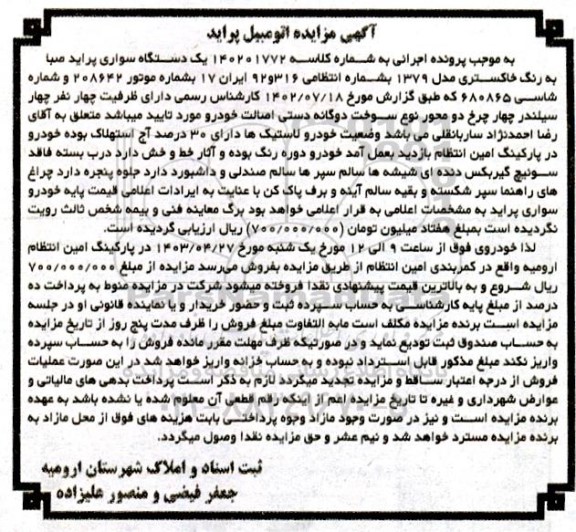 آگهی مزایده اتومبیل پراید
به موجب پرونده اجرائی به شماره کلاسه ۱۴۰۲۰۱۷۷۲ یک دستگاه سواری پراید صبا
به رنگ خاکستری مدل ۱۳۷۹ بشماره انتظامی ۳۱۶و۹۲ ایران ۱۷ بشماره موتور ۲۰۸۶۴۲ و شماره
شاسی ۶۸۰۸۶۵ که طبق گزارش مورخ ۱۴۰۲/۰۷/۱۸ کارشناس رسمی دارای ظرفیت چهار نفر چهار
سیلندر چهار چرخ دو محور نوع سوخت دوگانه دستی اصالت خودرو مورد تایید میباشد متعلق به آقای
رضا احمدنژاد ساربانقلی می باشد وضعیت خودرو لاستیک ها دارای ۳۰ درصد آج استهلاک بوده خودرو
در پارکینگ امین انتظام بازدید بعمل آمد خودرو دوره رنگ بوده و آثار خط و خش دارد درب بسته فاقد
سوئیچ گیربکس دنده ای شیشه ها سالم سپر ها سالم صندلی و داشبورد دارد جلوه پنجره دارد چراغ
های راهنما سپر شکسته و بقیه سالم آینه و برف پاک کن با عنایت به ایرادات اعلامی قیمت پایه خودرو
سواری پراید به مشخصات اعلامی به قرار اعلامی خواهد بود برگ معاینه فنی و بیمه شخص ثالث رویت
نگردیده است بمبلغ هفتاد میلیون تومان (۷۰۰/۰۰۰/۰۰۰) ریال ارزیابی گردیده است.
لذا خودروی فوق از ساعت ۹ الی ۱۲ مورخ یک شنبه مورخ ۱۴۰۳/۰۴/۲۷ در پارکینگ امین انتظام
ارومیه واقع در کمربندی امین انتظام از طریق مزایده بفروش می‌رسد مزایده از مبلغ ۷۰۰/۰۰۰/۰۰۰
ریال شروع و به بالاترین قیمت پیشنهادی نقدا فروخته میشود شرکت در مزایده منوط به پرداخت ده
درصد از مبلغ پایه کارشناسی به حساب سپرده ثبت و حضور خریدار و یا نماینده قانونی او در جلسه
مزایده است برنده مزایده مکلف است مابه التفاوت مبلغ فروش را ظرف مدت پنج روز از تاریخ مزایده
به حساب صندوق ثبت تودیع نماید ودر صورتیکه ظرف مهلت مقرر مانده فروش را به حساب سپرده
واریز نکند مبلغ مذکور قابل استرداد نبوده و به حساب خزانه واریز خواهد شد در این صورت عملیات
فروش از درجه اعتبار ساقط و مزایده تجدید میگردد لازم به ذکر است پرداخت بدهی های مالیاتی و
عوارض شهرداری و غیره تا تاریخ مزایده اعم از اینکه رقم قطعی آن معلوم شده یا نشده باشد به عهده
برنده مزایده است و نیز در صورت وجود مازاد وجوه پرداختی بابت هزینه های فوق از محل مازاد به
برنده مزایده مسترد خواهد شد و نیم عشر و حق مزایده نقدا وصول میگردد.
ثبت اسناد و املاک شهرستان ارومیه
جعفر فیضی و منصور علیزاده